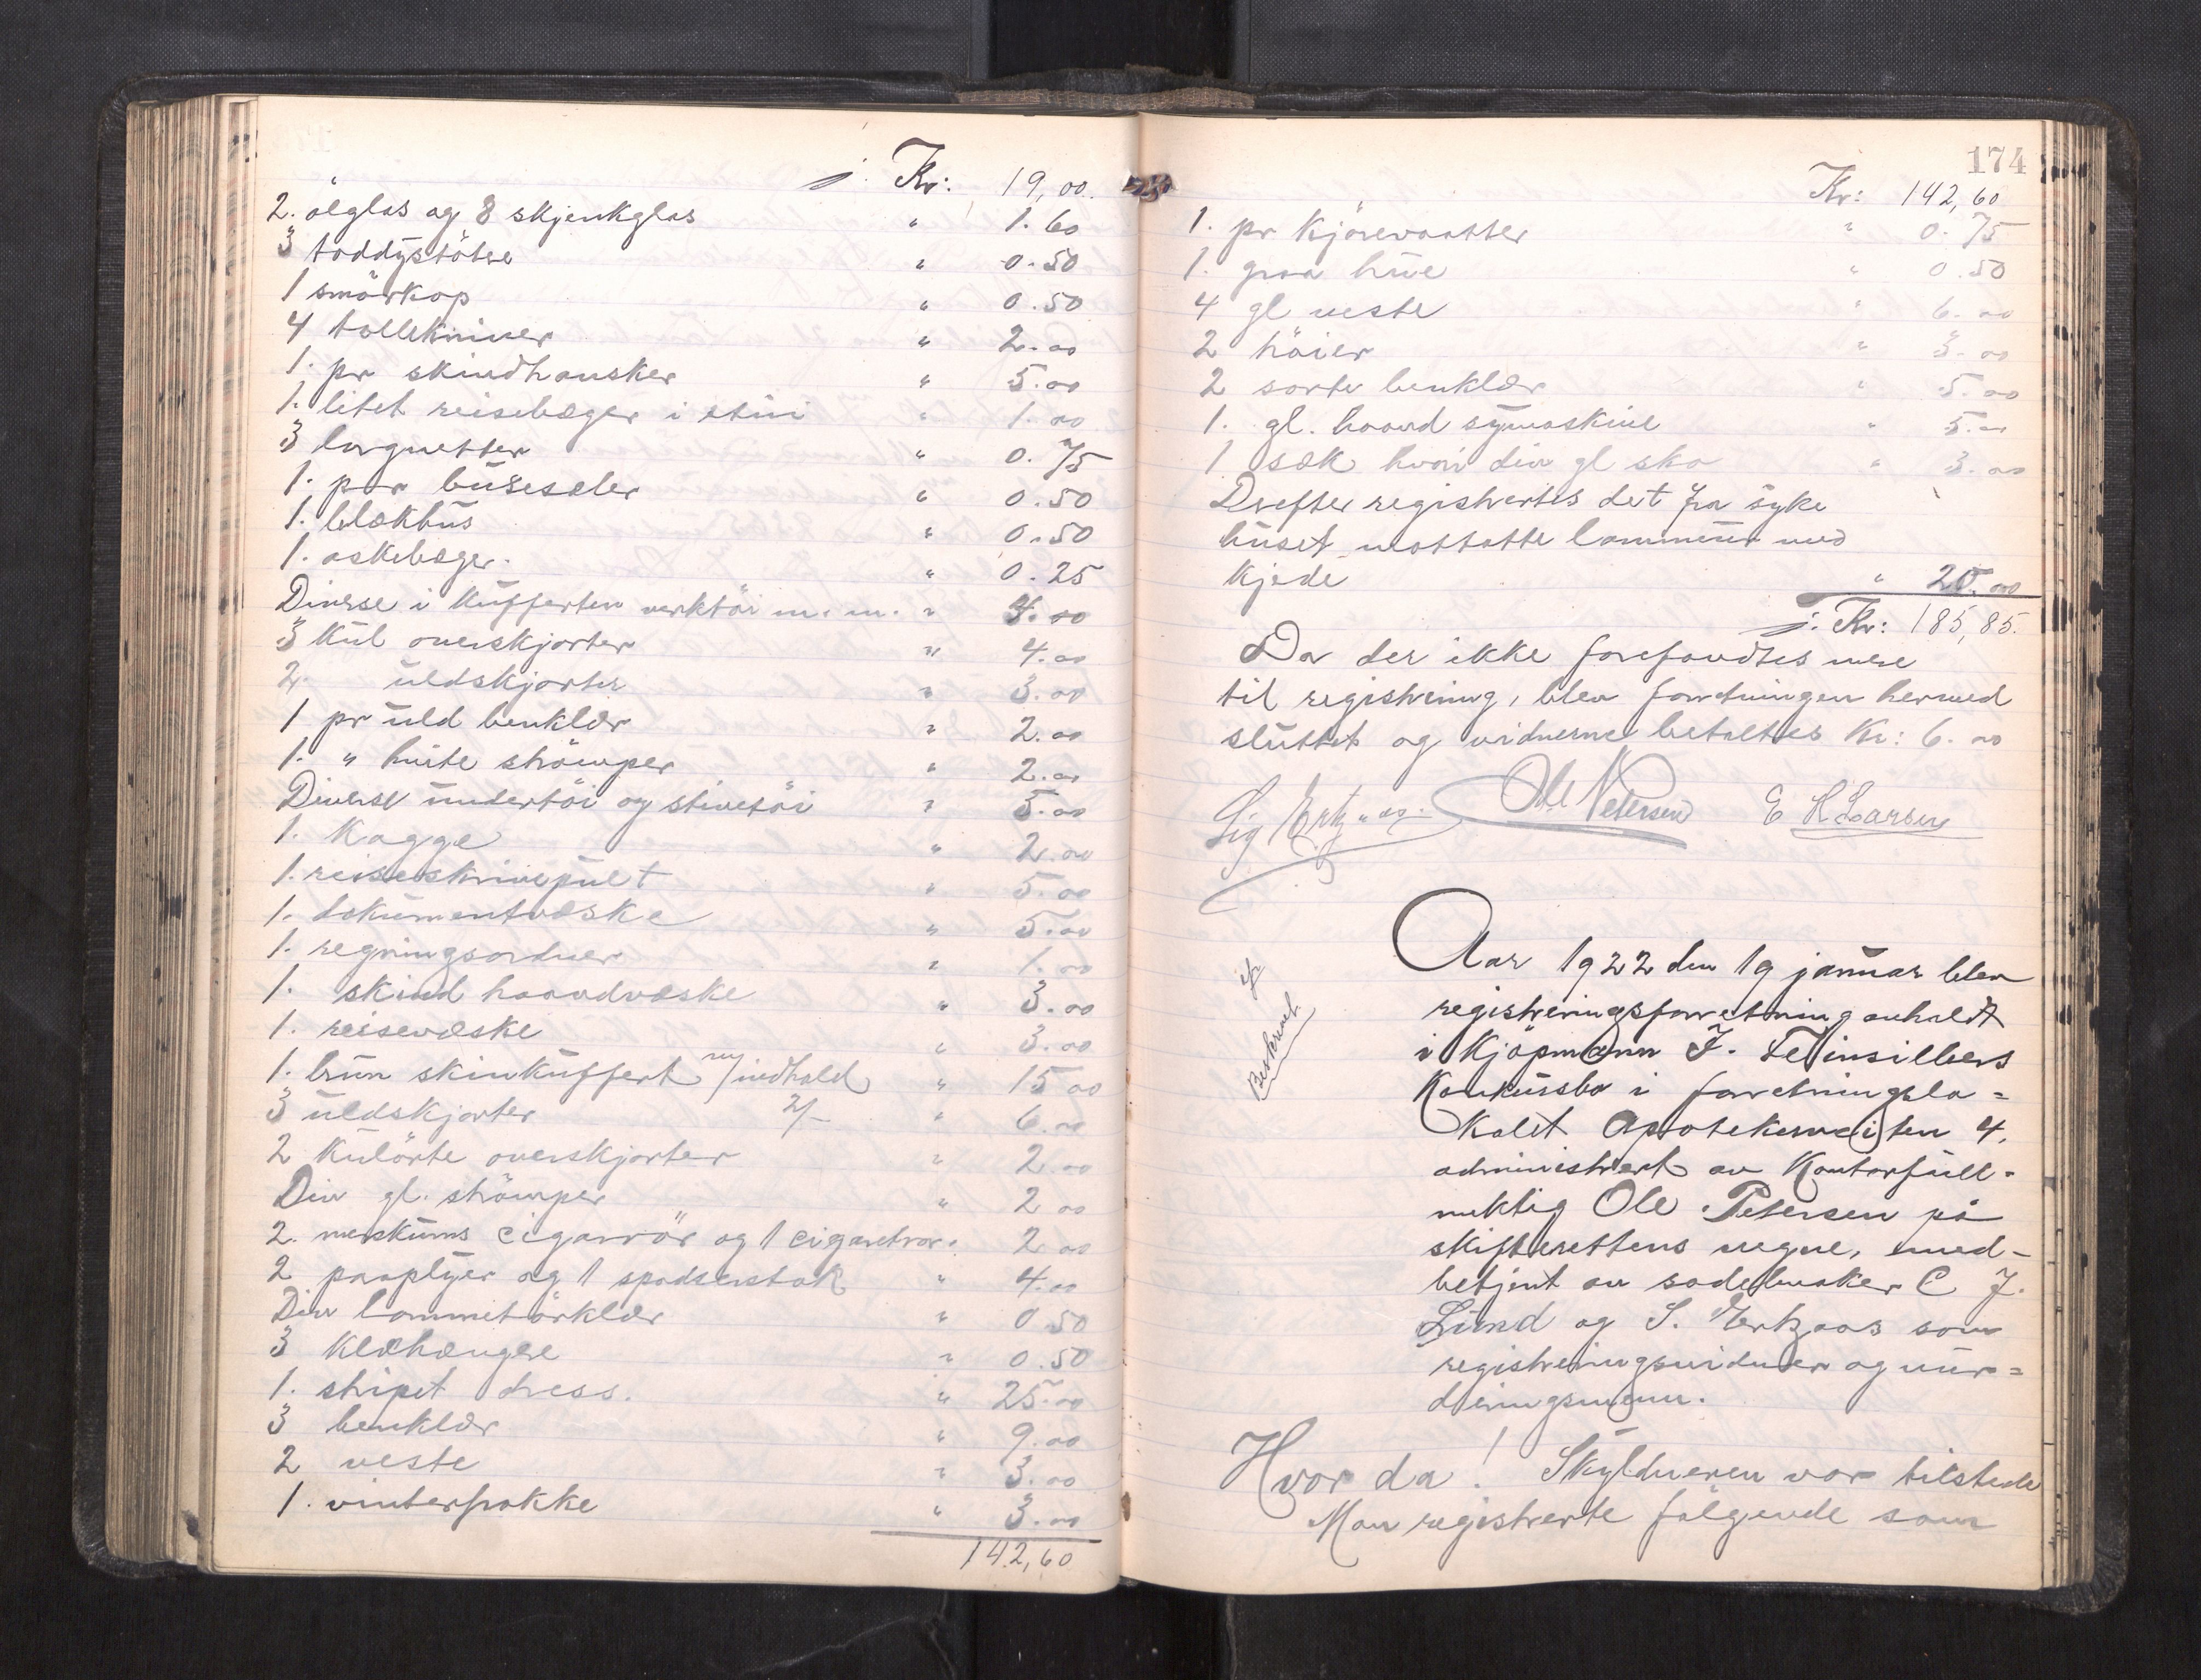 j. Kr: 19,00.
2. ölglas og 8 skjenkglas " 1.60
3 toddystötere " 0.50
1 smörkop " 0.50
4 tollekniver " 2.00
1. pr skindhansker " 5.00
1. litet reisebæger i etui " 1.00
3 lorgnetter " 0.75
1. par buseseler " 0.50
1. blækhus " 0.50
1. askebæger. " 0.25
Diverse i kufferten verktöi m. m. " 4.00
3 kul overskjorter " 4.00
2. uldskjorter " 3.00
1 pr uld benklær " 2.00
1. " hvite strömper " 2.00
Diverse undertöi og stivetöi " 5.00
1. Kagge " 2.00
1. reiseskrivepult " 5.00
1. dokumentvæske " 5.00
1. regningsordner " 1.00
1. skind haandvæske " 3.00
1. reisevæske " 3.00
1. brun skinkuffert m/indhold " 15 00
3 uldskjorter 2/- " 6.00
2 kulörte overskjorter " 2.00
Div gl. strömper " 2 00
2. merskums cigarrör og 1 cigaretrör. 2 00
2 paaplyer og 1 spadserstok " 4.00
Div lommetörklær " 0 50
3 klæhængere " 0.50
1. stripet dress. " 25.00
3 benklær " 9.00
2 veste " 3.00
1. vinterfrakke " 3.00
142,60
174
Kr: 142,60
1. pr kjörevaatter " 0.75
1. graa hue " 0.50
4 gl veste " 6.00
2 tröier " 3.00
2 sorte benklær " 5.00
1. gl. haand symaskine " 5.00
1 sæk hvori div gl sko " 3.00
Drefter registrertes det fra syke
huset mottatte lommeur med
kjede " 20.00
j. Kr: 185,85.
Da der ikke forefandtes mere
til registrering, blev forretningen hermed
sluttet og vidnerne betaltes Kr: 6.00
Sig Ertzaas. Ole Petersen E K Larsen
Beskrevet
Aar 1922 den 19 januar blev
registreringsforretning avholdt
i Kjöpmann J. Feinsilbers
Konkursbo i forretningslo=
kalet Apotekerveiten 4,
administrert av Kontorfull-
mektig Ole Petersen på
skifterettens vegne, med-
betjent av sadelmaker C J.
Lund og S. Ertzaas som
registreringsvidner og vur=
deringsmenn.
Hvor da! Skyldneren var tilstede
Man registrerte fölgende som